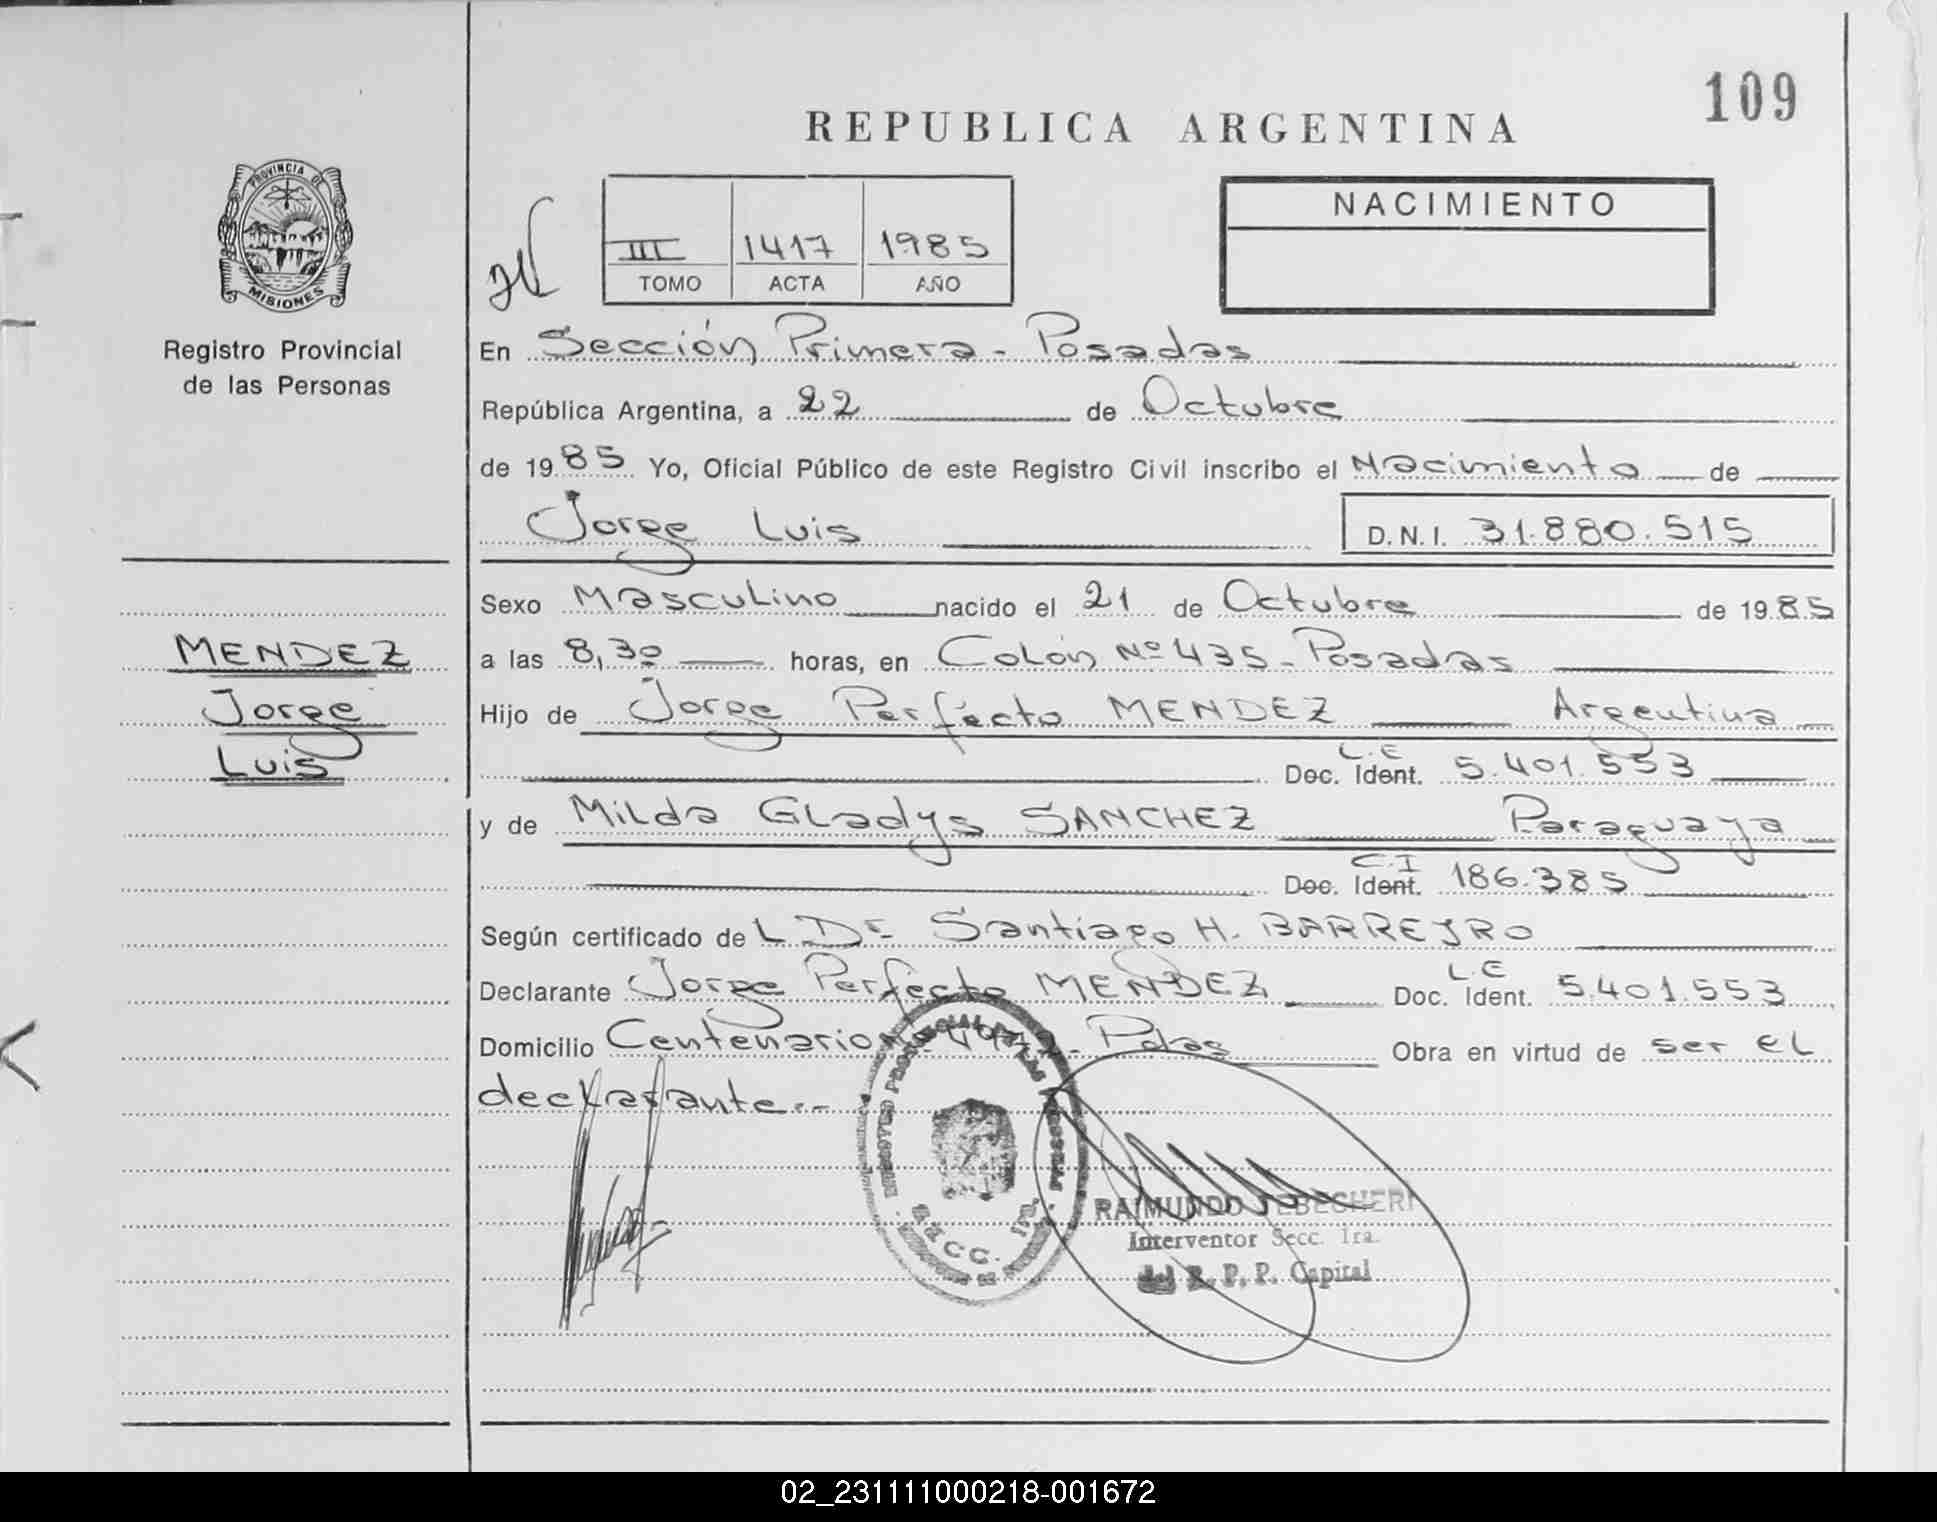 109
REPUBLICA ARGENTINA
PROVINCIA DE
MISIONES
Registro Provincial
de las Personas
III 1417 1985
TOMO ACTA AÑO
NACIMIENTO
En Sección Primera - Posadas
República Argentina, a 22 de Octubre
de 1985 Yo, Oficial Público de este Registro Civil inscribo el Nacimiento de
Jorge Luis D.N.I. 31.880.515
Sexo Masculino nacido el 21 de Octubre de 1985
MENDEZ
Jorge
Luis
a las 8,30 horas, en Colón Nº 435 - Posadas
Hijo de Jorge Perfecto MENDEZ Argentina
L.E
Doc. Ident. 5.401.553
y de Milda Gladys SANCHEZ Paraguaya
C.I
Doc. Ident. 186.385
Según certificado de L Dr. Santiago H. BARREYRO
Declarante Jorge Perfecto MENDEZ L.E Doc. Ident. 5.401.553
Domicilio Centenario - Pdas Obra en virtud de ser el
declarante.--
REGISTRO PROVINCIAL DE LAS PERSONAS
SECC. 1ra.
RAIMUNDO
Interventor Secc. 1ra.
del R. P. P. Capital
02_231111000218-001672